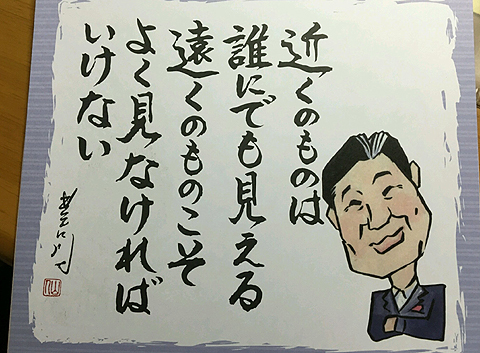 近くのものは
誰にでも見える
遠くのものこそ
よく見なければ
いけない